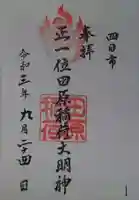 四日市
奉拝
正一位田原稲荷大明神
田原稲荷
令和三年九月二十四日